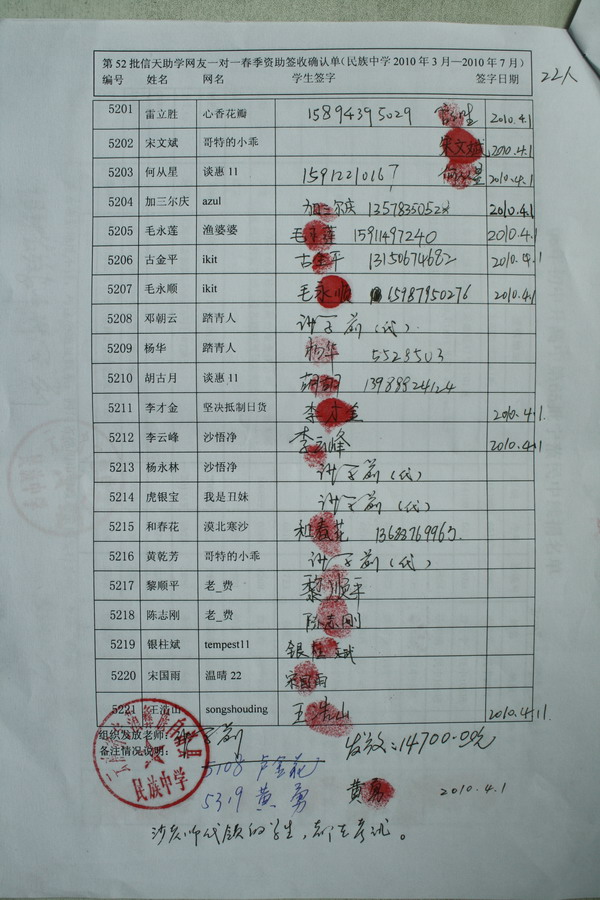 第52批信天助学网友一对一春季资助签收确认单(民族中学2010年3月—2010年7月)
编号 姓名 网名 学生签字 签字日期 22人
5201 雷立胜 心香花瓣 15894395029 2010.4.1
5202 宋文斌 哥特的小乖 宋文斌 2010.4.1
5203 何从星 谈惠11 15912210167 何从星 2010.4.1
5204 加三尔庆 azul 加三尔庆 1357835052 2010.4.1
5205 毛永莲 渔婆婆 毛永莲 15911497240 2010.4.1
5206 古金平 ikit 古金平 13150674682 2010.4.1
5207 毛永顺 ikit 毛永顺 15987950276 2010.4.1
5208 邓朝云 踏青人 (代)
5209 杨华 踏青人 杨华 5528503
5210 胡古月 谈惠11 13988924124
5211 李才金 坚决抵制日货 李才金 2010.4.1.
5212 李云峰 沙悟净 李云峰 2010.4.1
5213 杨永林 沙悟净 (代)
5214 虎银宝 我是丑妹 (代)
5215 和春花 漠北寒沙 和春花 13688769965.
5216 黄乾芳 哥特的小乖 (代)
5217 黎顺平 老_费 黎顺平
5218 陈志刚 老_费 陈志刚
5219 银柱斌 tempest11 银柱斌
5220 宋国雨 温晴22 宋国雨
5221 王浩山 songshouding 王浩山 2010.4.1.
组织发放老师: 发放:14700.00元
备注情况说明: 5108 卢金花
民族中学
5319 黄勇 黄勇 2010.4.1
沙老师代领的学生,都在考试。